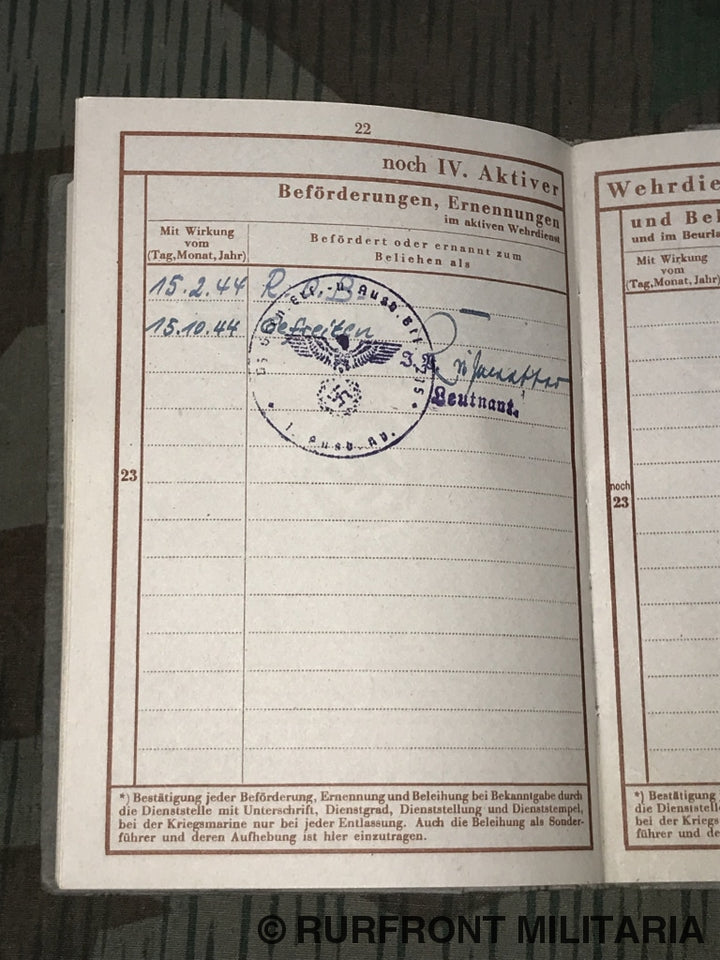 22
noch IV. Aktiver
Beförderungen, Ernennungen
im aktiven Wehrdienst
Mit Wirkung
vom
(Tag, Monat, Jahr)
Befördert oder ernannt zum
Beliehen als
15.2.44 R.O.B.
15.10.44 Gefreiten
u. Ausb.
1. Ausb.
Leutnant.
23
*) Bestätigung jeder Beförderung, Ernennung und Beleihung bei Bekanntgabe durch
die Dienststelle mit Unterschrift, Dienstgrad, Dienststellung und Dienststempel,
bei der Kriegsmarine nur bei jeder Entlassung. Auch die Beleihung als Sonder-
führer und deren Aufhebung ist hier einzutragen.
Wehrdie
und Bel
und im Beurla
Mit Wirkung
vom
(Tag, Monat, Jahr)
noch
23
*) Bestätigung
die Dienststell
bei der Kriegs
führer und de
© RURFRONT MILITARIA